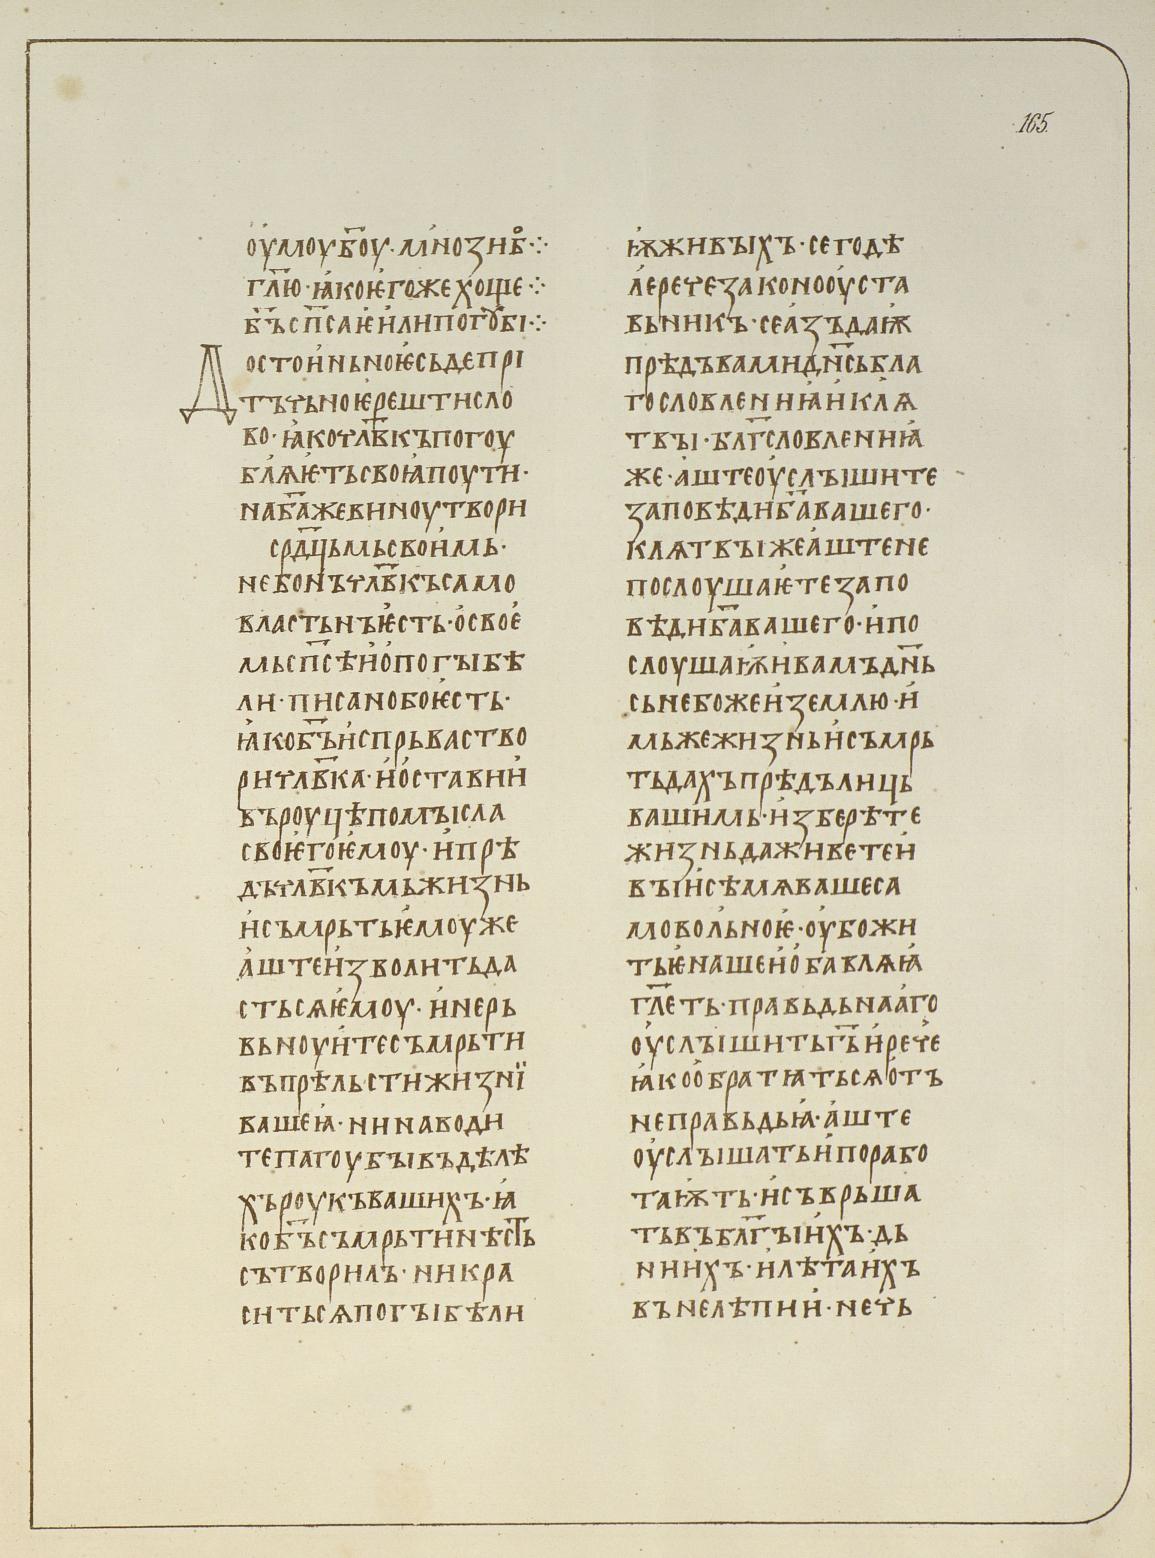 165.
оумоубо҃у· мнозиб꙽ ⁘
гл҃ю· ꙗкоѥгожехоще ⁘
б҃ъсп҃саѥилипогѹбі ⁘
Достоиньноѥсьдепрі
тътьноѥрештисло
во· ꙗкочл҃вкъпогоу
блѧѥтьсвоꙗпоути·
наб҃ажевиноутвори
срд҃цьмьсвоимь·
небонъчл҃вкъсамо
властьнъѥсть· освоѥ
мьсп҃сѣнопогыбѣ
ли· писанобоѥсть·
ꙗкоб҃ъиспрьваство
ричл҃вка· иоставии
въроуцѣпомъісла
своѥгоѥмоу· ипрѣ
дъчл҃вкъмьжизнь
исъмрьтьѥмоуже
аштеизволитьда
стьсѧѥмоу· инерь
вьноуитесъмрьти
въпрѣльстижизнї
вашеꙗ· нинаводи
тепагоубъівъдѣлѣ
хъроукъвашихъ· ꙗ
коб҃ъсъмрьтинѣсть
сътворилъ· никра
ситьсѧпогъібѣли
ѭживъіхъ· сегодѣ
леречезаконооуста
вьникъ· сеазъдаѭ
прѣдъвамидн҃сьбла
гословлениꙗиклѧ
твъі· блг҃словлениꙗ
же· аштеоуслъішите
заповѣдиб҃авашего·
клѧтвъіжеаштене
послоушаѥтезапо
вѣдиб҃авашего· ипо
слоушаѭивамъдн҃ь
сьнебожеиземлю· и
мьжежизньисъмрь
тьдахъпрѣдълиць
вашимь· изберѣте
жизньдаживетеи
въіисѣмѧвашеса
мовольноѥ· оубожи
тьѥнашеиобавлѧꙗ
гл҃еть· правьдьнааго
оуслъішитьг҃ьирече
ꙗкообратꙗтьсѧотъ
неправьдъꙗ· аште
оуслъішатьипорабо
таѭть· исъврьша
тьвъблг҃ъіихъ· дь
ниихъ· илѣтаихъ
вънелѣпии· нечь